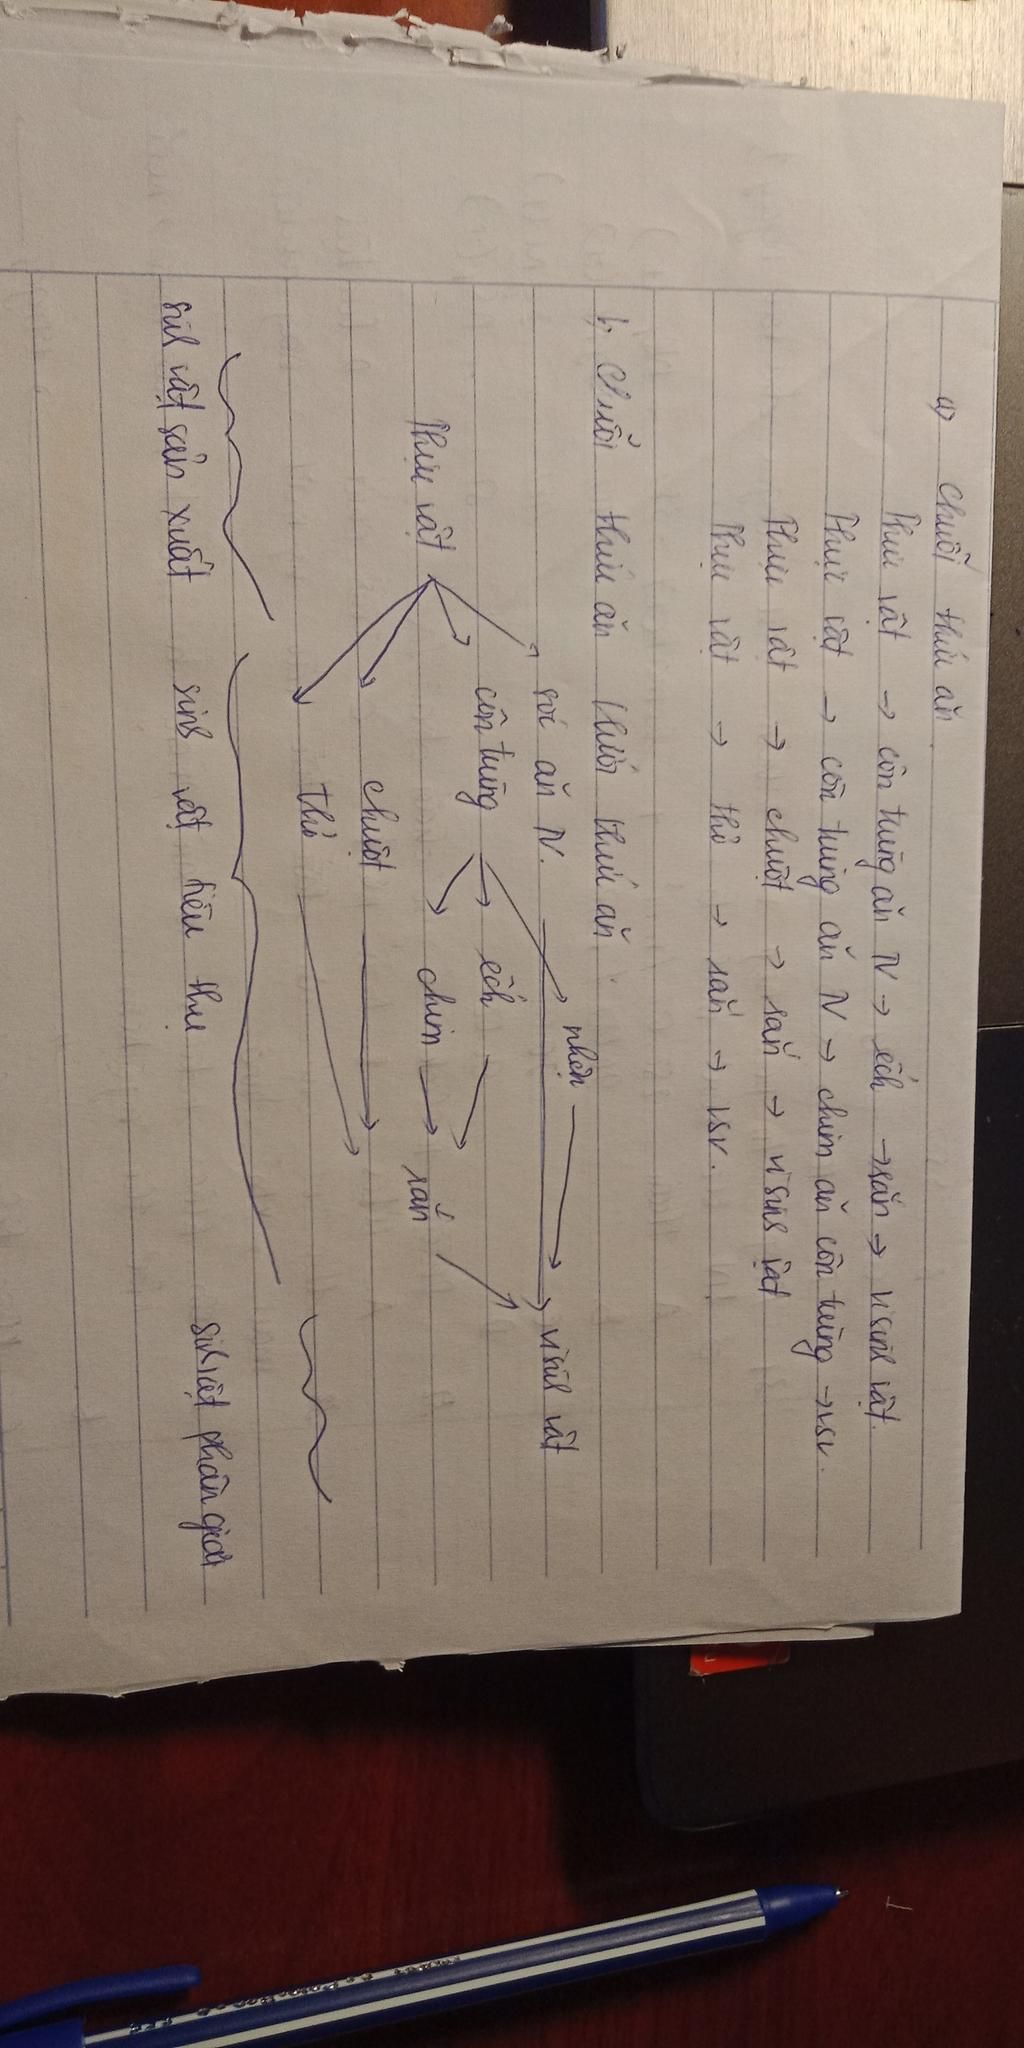 a) Chuỗi thức ăn
Thực vật → côn trùng ăn TV → ếch → rắn → vi sinh vật.
Thực vật → côn trùng ăn TV → chim ăn côn trùng → VSV.
Thực vật → chuột → rắn → vi sinh vật
Thực vật → thỏ → rắn → VSV.
b, Chuỗi thức ăn lưới thức ăn
nhện
ăn TV. vi sinh vật
côn trùng ếch
Thực vật chim rắn
chuột
thỏ
sinh vật sản xuất sinh vật tiêu thụ sinh vật phân giải